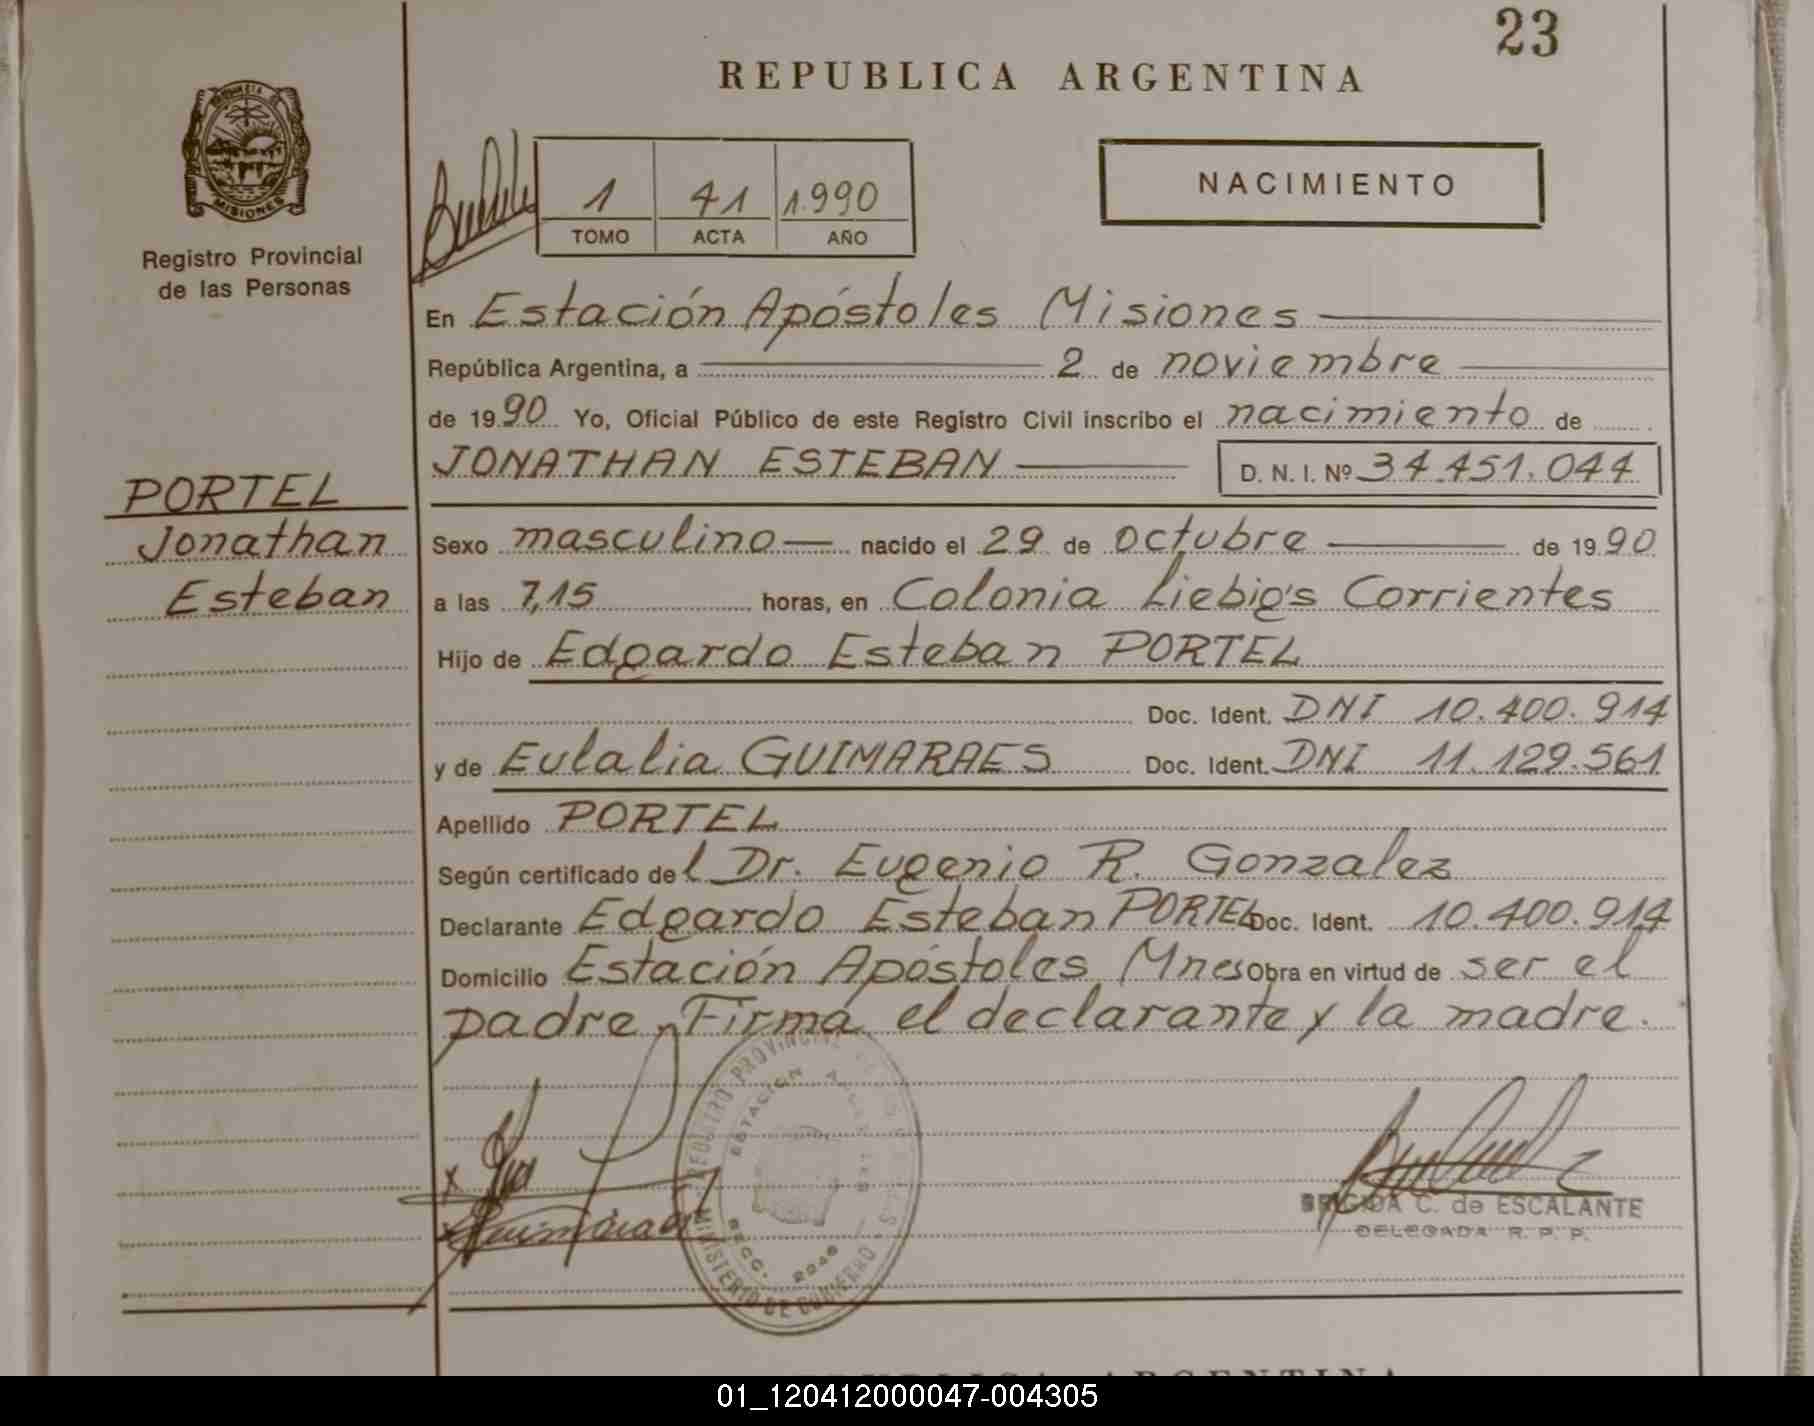 23
REPUBLICA ARGENTINA
PROVINCIA DE
MISIONES
Registro Provincial
de las Personas
1 41 1.990
TOMO ACTA AÑO
NACIMIENTO
En Estación Apóstoles Misiones
República Argentina, a 2 de noviembre
de 1990 Yo, Oficial Público de este Registro Civil inscribo el nacimiento de
JONATHAN ESTEBAN D. N. I. Nº 34.451.044
PORTEL
Jonathan
Esteban
Sexo masculino nacido el 29 de octubre de 1990
a las 7,15 horas, en Colonia Liebig's Corrientes
Hijo de Edgardo Esteban PORTEL
Doc. Ident. DNI 10.400.914
y de Eulalia GUIMARAES Doc. Ident. DNI 11.129.561
Apellido PORTEL
Según certificado del Dr. Eugenio R. Gonzalez
Declarante Edgardo Esteban PORTEL Doc. Ident. 10.400.914
Domicilio Estación Apóstoles Mnes Obra en virtud de ser el
padre, Firma el declarante y la madre.
REGISTRO PROVINCIAL
ESTACION
MINISTERIO DE GOBIERNO
BRIGIDA C. de ESCALANTE
DELEGADA R. P. P.
REPUBLICA ARGENTINA
01_120412000047-004305